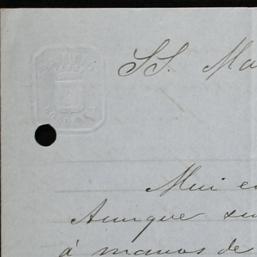 SS. Ma
Mui e
Aunque su
á manos de